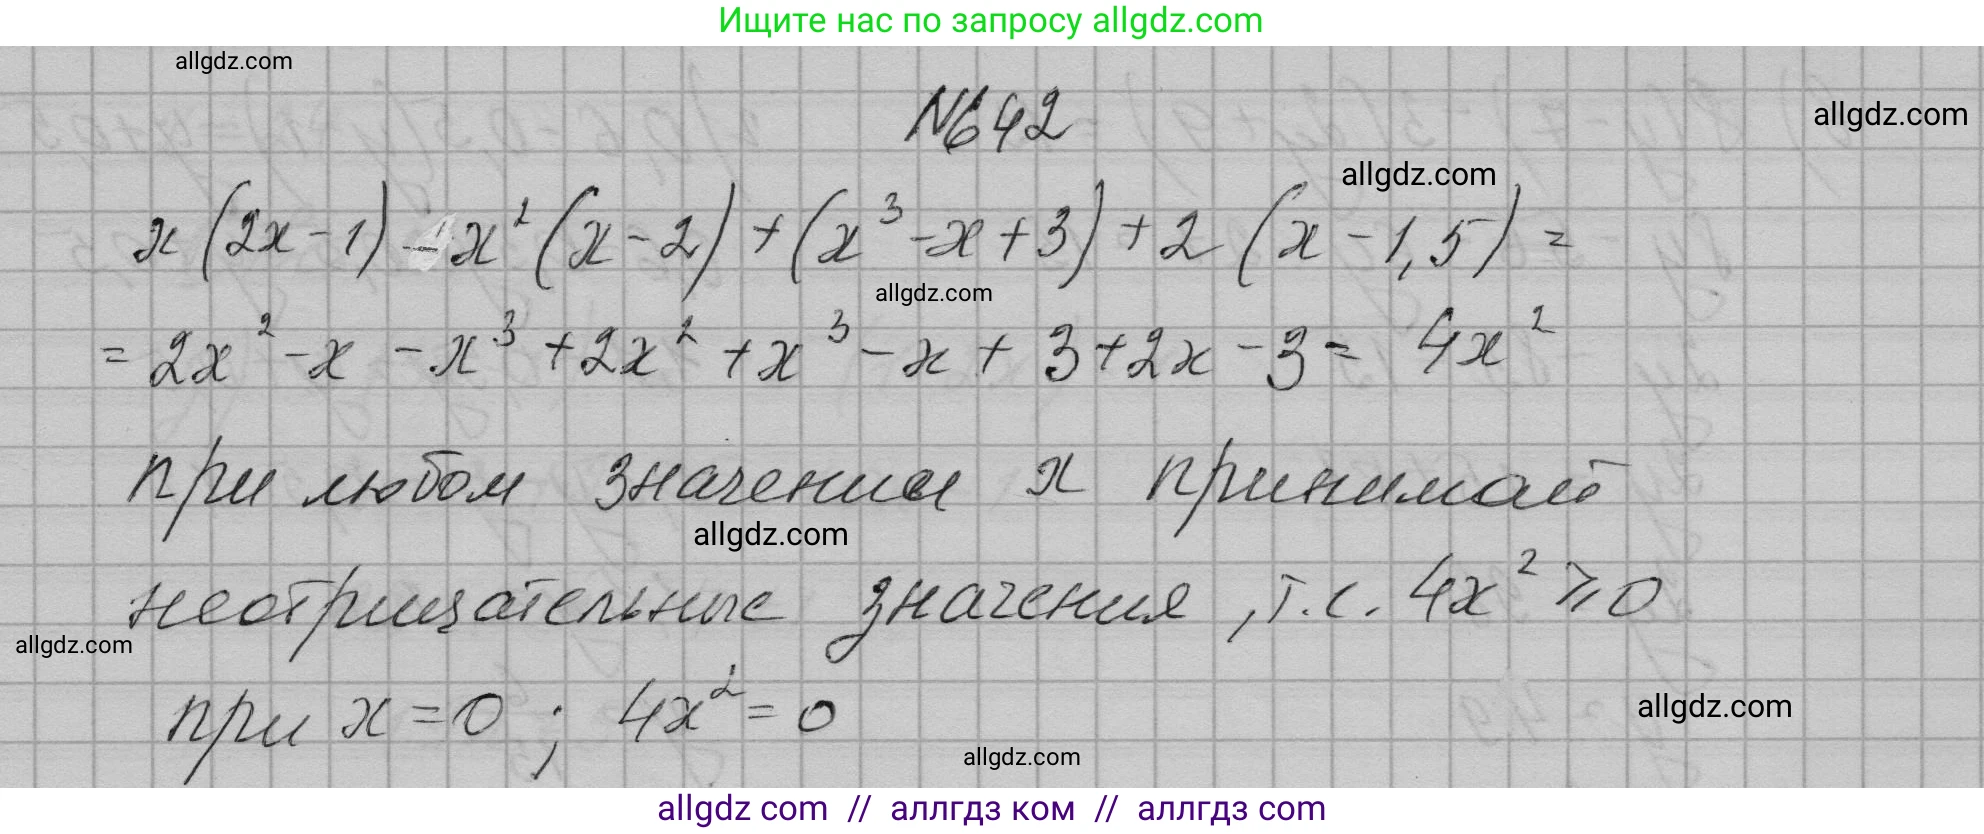 Ищите нас по запросу allgdz.com
allgdz.com
№642
allgdz.com
allgdz.com
x(2x-1)-x²(x-2)+(x³-x+3)+2(x-1,5)=
allgdz.com
=2x²-x-x³+2x²+x³-x+3+2x-3=4x²
при любом значении x принимает
allgdz.com
неотрицательные значения, т.е. 4x²⩾0
allgdz.com
при x=0; 4x²=0
allgdz.com
allgdz.com
allgdz com // аллгдз ком // аллгдз.com